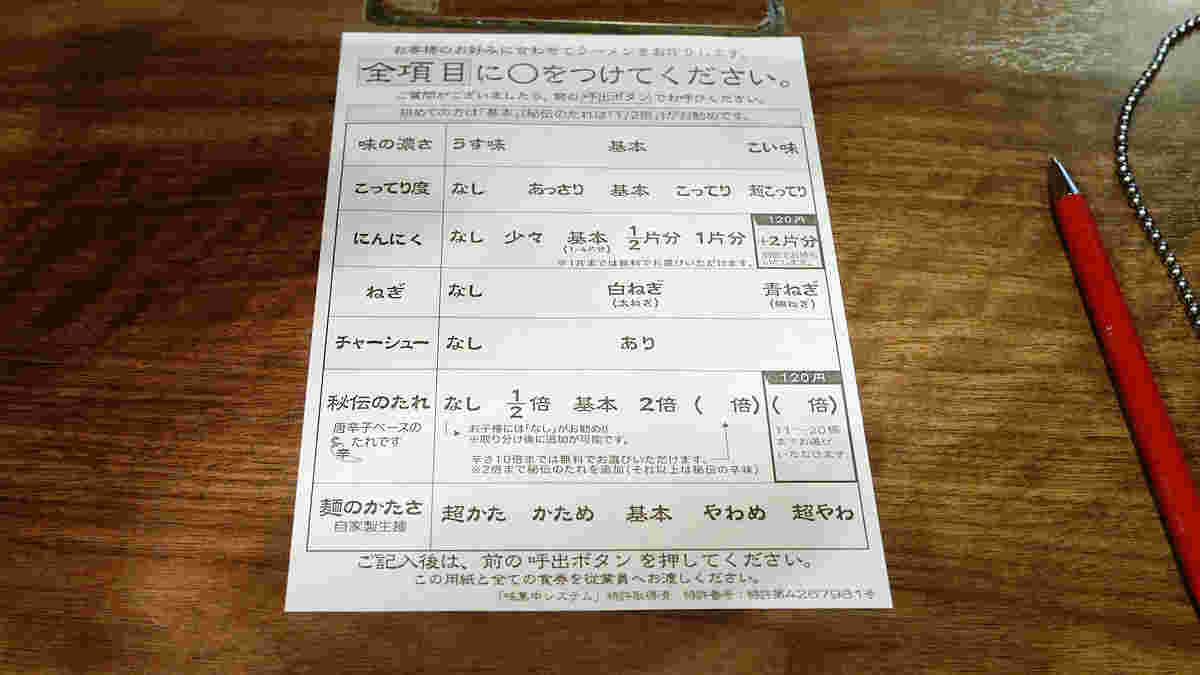 お客様のお好みに合わせてラーメンをお作りします。
全項目に○をつけてください。
ご質問がございましたら、前の呼出ボタンでお呼びください。
初めての方は「基本」(秘伝のたれは「1/2倍」)がお勧めです。
味の濃さ うす味 基本 こい味
こってり度 なし あっさり 基本 こってり 超こってり
120円
にんにく なし 少々 基本 1/2片分 1片分 +2片分
(1/4片分)
※1片までは無料でお選びいただけます。
ねぎ なし 白ねぎ 青ねぎ
(太ねぎ) (細ねぎ)
チャーシュー なし あり
120円
秘伝のたれ なし 1/2倍 基本 2倍 ( 倍) ( 倍)
唐辛子ベースの
たれです
辛
お子様には「なし」がお勧め!!
※取り分け後に追加が可能です。
辛さ10倍までは無料でお選びいただけます。
※2倍まで秘伝のたれを追加(それ以上は秘伝の辛味)
11〜20倍
までお選び
いただけます。
麺のかたさ 超かた かため 基本 やわめ 超やわ
自家製生麺
ご記入後は、前の呼出ボタンを押してください。
この用紙と全ての食券を従業員へお渡しください。
「味集中システム」特許取得済 特許番号:特許第4267981号